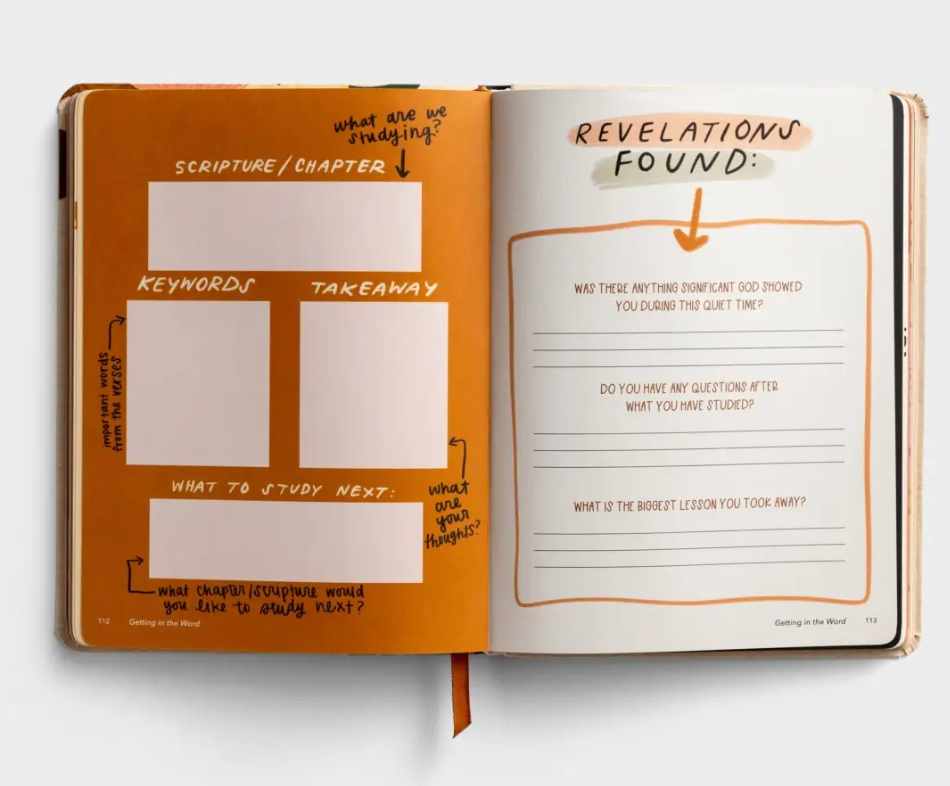 what are we
studying?
SCRIPTURE/CHAPTER
KEYWORDS
TAKEAWAY
important words
from the verses
WHAT TO STUDY NEXT:
what
are
your
thoughts?
what chapter/scripture would
you like to study next?
112 Getting in the Word
REVELATIONS
FOUND:
WAS THERE ANYTHING SIGNIFICANT GOD SHOWED
YOU DURING THIS QUIET TIME?
DO YOU HAVE ANY QUESTIONS AFTER
WHAT YOU HAVE STUDIED?
WHAT IS THE BIGGEST LESSON YOU TOOK AWAY?
Getting in the Word 113